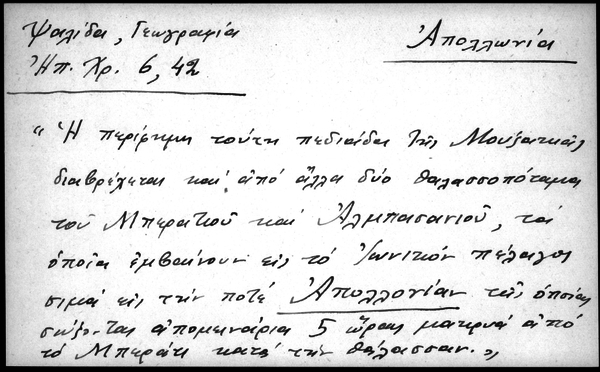 Ψαλίδα, Γεωγραφία
Ἠπ. Χρ. 6, 42
Ἀπολλωνία
"Ἡ περίφημη τούτη πεδιάδα τῆς Μουζακιᾶς
διαβρέχεται καὶ ἀπό ἄλλα δύο θαλασσοπόταμα
τοῦ Μπερατιοῦ καὶ Ἀλμπασανιοῦ, τά
ὁποῖα ἐμβαίνουν εἰς τό Ἰωνικόν πέλαγος
σιμά εἰς τήν ποτέ Ἀπολλονίαν τῆς ὁποίας
σώζονται ἀπομεινάρια 5 ὥρας μακρυά ἀπό
τό Μπεράτι κατά τήν θάλασσαν."